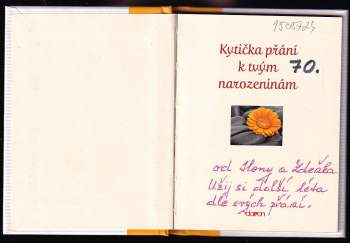 1505723
Kytička přání
k tvým 70.
narozeninám
od Ilony a Zdeňka
Užij si další léta
dle svých přání.